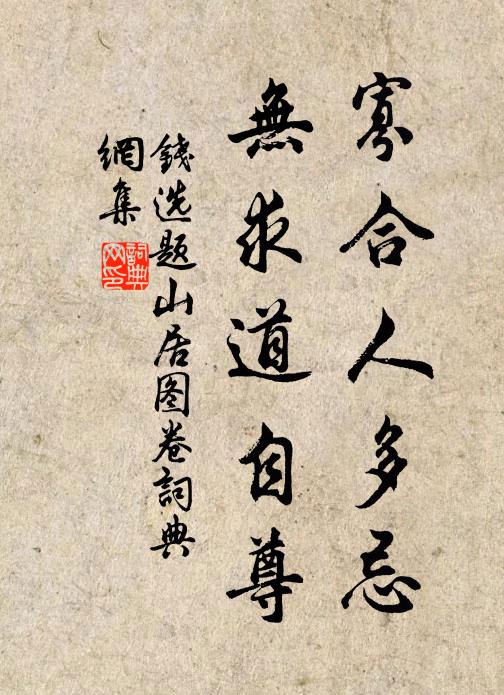 寡合人多忌
無求道自尊
錢选题山居图卷詞典
網集
詞典
网印